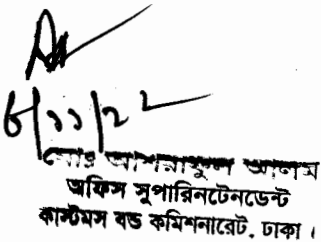 ৬/১১/২২
মোঃ আশরাফুল আলম
অফিস সুপারিনটেনডেন্ট
কাস্টমস বন্ড কমিশনারেট, ঢাকা।